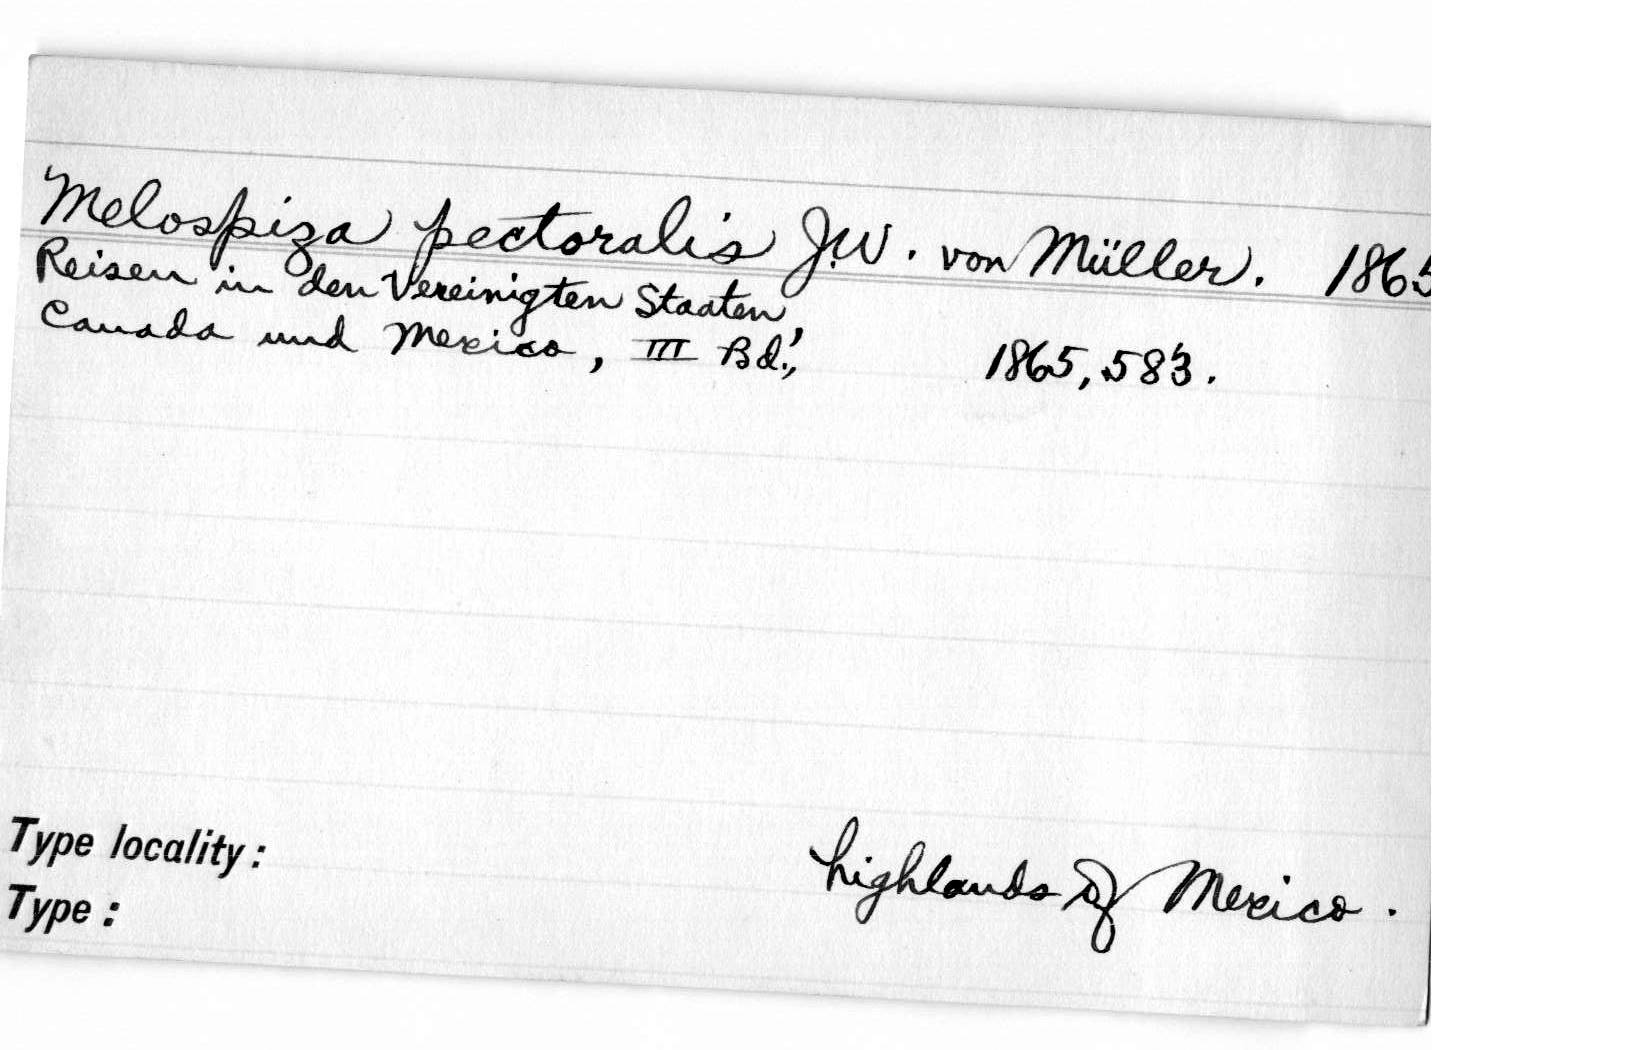 Melospiza pectoralis J.W. von Müller. 1865
Reisen in den Vereinigten Staaten,
Canada und Mexico, III Bd., 1865, 583.
Type locality: highlands of Mexico.
Type: